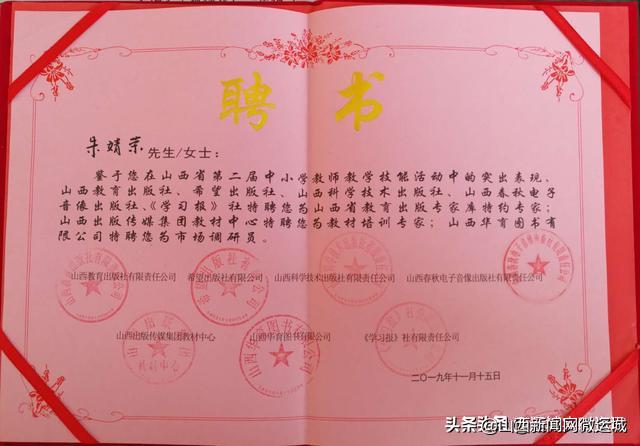 聘书
朱婧荣 先生/女士：
鉴于您在山西省第二届中小学教师教学技能活动中的突出表现，
山西教育出版社、希望出版社、山西科学技术出版社、山西春秋电子
音像出版社、《学习报》社特聘您为山西省教育出版专家库特约专家；
山西出版传媒集团教材中心特聘您为教材培训专家；山西华育图书有
限公司特聘您为市场调研员。
山西教育出版社有限责任公司 希望出版社有限公司 山西科学技术出版社有限责任公司 山西春秋电子音像出版社有限责任公司
山西出版传媒集团教材中心 山西华育图书有限公司 《学习报》社有限责任公司
二〇一九年十一月十五日
头条 @山西新闻网微运城